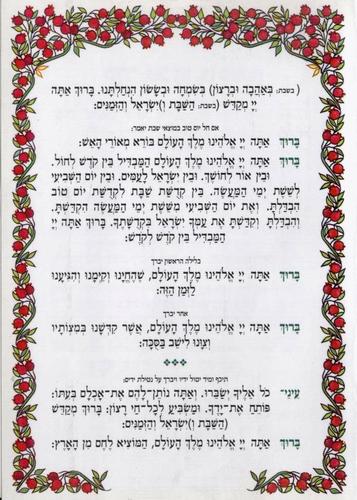 (בשבת: בְּאַהֲבָה וּבְרָצוֹן) בְּשִׂמְחָה וּבְשָׂשׂוֹן הִנְחַלְתָּנוּ. בָּרוּךְ אַתָּה
יְיָ מְקַדֵּשׁ (בשבת: הַשַּׁבָּת וְ)יִשְׂרָאֵל וְהַזְּמַנִּים:
אם חל יום טוב במוצאי שבת יאמר:
בָּרוּךְ אַתָּה יְיָ אֱלֹהֵינוּ מֶלֶךְ הָעוֹלָם בּוֹרֵא מְאוֹרֵי הָאֵשׁ:
בָּרוּךְ אַתָּה יְיָ אֱלֹהֵינוּ מֶלֶךְ הָעוֹלָם הַמַּבְדִּיל בֵּין קֹדֶשׁ לְחוֹל.
וּבֵין אוֹר לְחוֹשֶׁךְ. וּבֵין יִשְׂרָאֵל לָעַמִּים. וּבֵין יוֹם הַשְּׁבִיעִי
לְשֵׁשֶׁת יְמֵי הַמַּעֲשֶׂה. בֵּין קְדֻשַּׁת שַׁבָּת לִקְדֻשַּׁת יוֹם טוֹב
הִבְדַּלְתָּ. וְאֶת יוֹם הַשְּׁבִיעִי מִשֵּׁשֶׁת יְמֵי הַמַּעֲשֶׂה הִקְדַּשְׁתָּ.
וְהִבְדַּלְתָּ וְקִדַּשְׁתָּ אֶת עַמְּךָ יִשְׂרָאֵל בִּקְדֻשָּׁתֶךָ. בָּרוּךְ אַתָּה יְיָ
הַמַּבְדִּיל בֵּין קֹדֶשׁ לְקֹדֶשׁ:
בלילה הראשון יברך
בָּרוּךְ אַתָּה יְיָ אֱלֹהֵינוּ מֶלֶךְ הָעוֹלָם, שֶׁהֶחֱיָנוּ וְקִיְּמָנוּ וְהִגִּיעָנוּ
לַזְּמַן הַזֶּה:
אחר יברך
בָּרוּךְ אַתָּה יְיָ אֱלֹהֵינוּ מֶלֶךְ הָעוֹלָם, אֲשֶׁר קִדְּשָׁנוּ בְּמִצְוֹתָיו
וְצִוָּנוּ לֵישֵׁב בַּסֻּכָּה:
תיכף ומיד יטול ידיו ויברך על נטילת ידים:
עֵינֵי־ כֹל אֵלֶיךָ יְשַׂבֵּרוּ. וְאַתָּה נוֹתֵן־לָהֶם אֶת־אָכְלָם בְּעִתּוֹ:
פּוֹתֵחַ אֶת־יָדֶךָ. וּמַשְׂבִּיעַ לְכָל־חַי רָצוֹן: בָּרוּךְ מְקַדֵּשׁ
(הַשַּׁבָּת וְ)יִשְׂרָאֵל וְהַזְּמַנִּים:
בָּרוּךְ אַתָּה יְיָ אֱלֹהֵינוּ מֶלֶךְ הָעוֹלָם, הַמּוֹצִיא לֶחֶם מִן הָאָרֶץ: